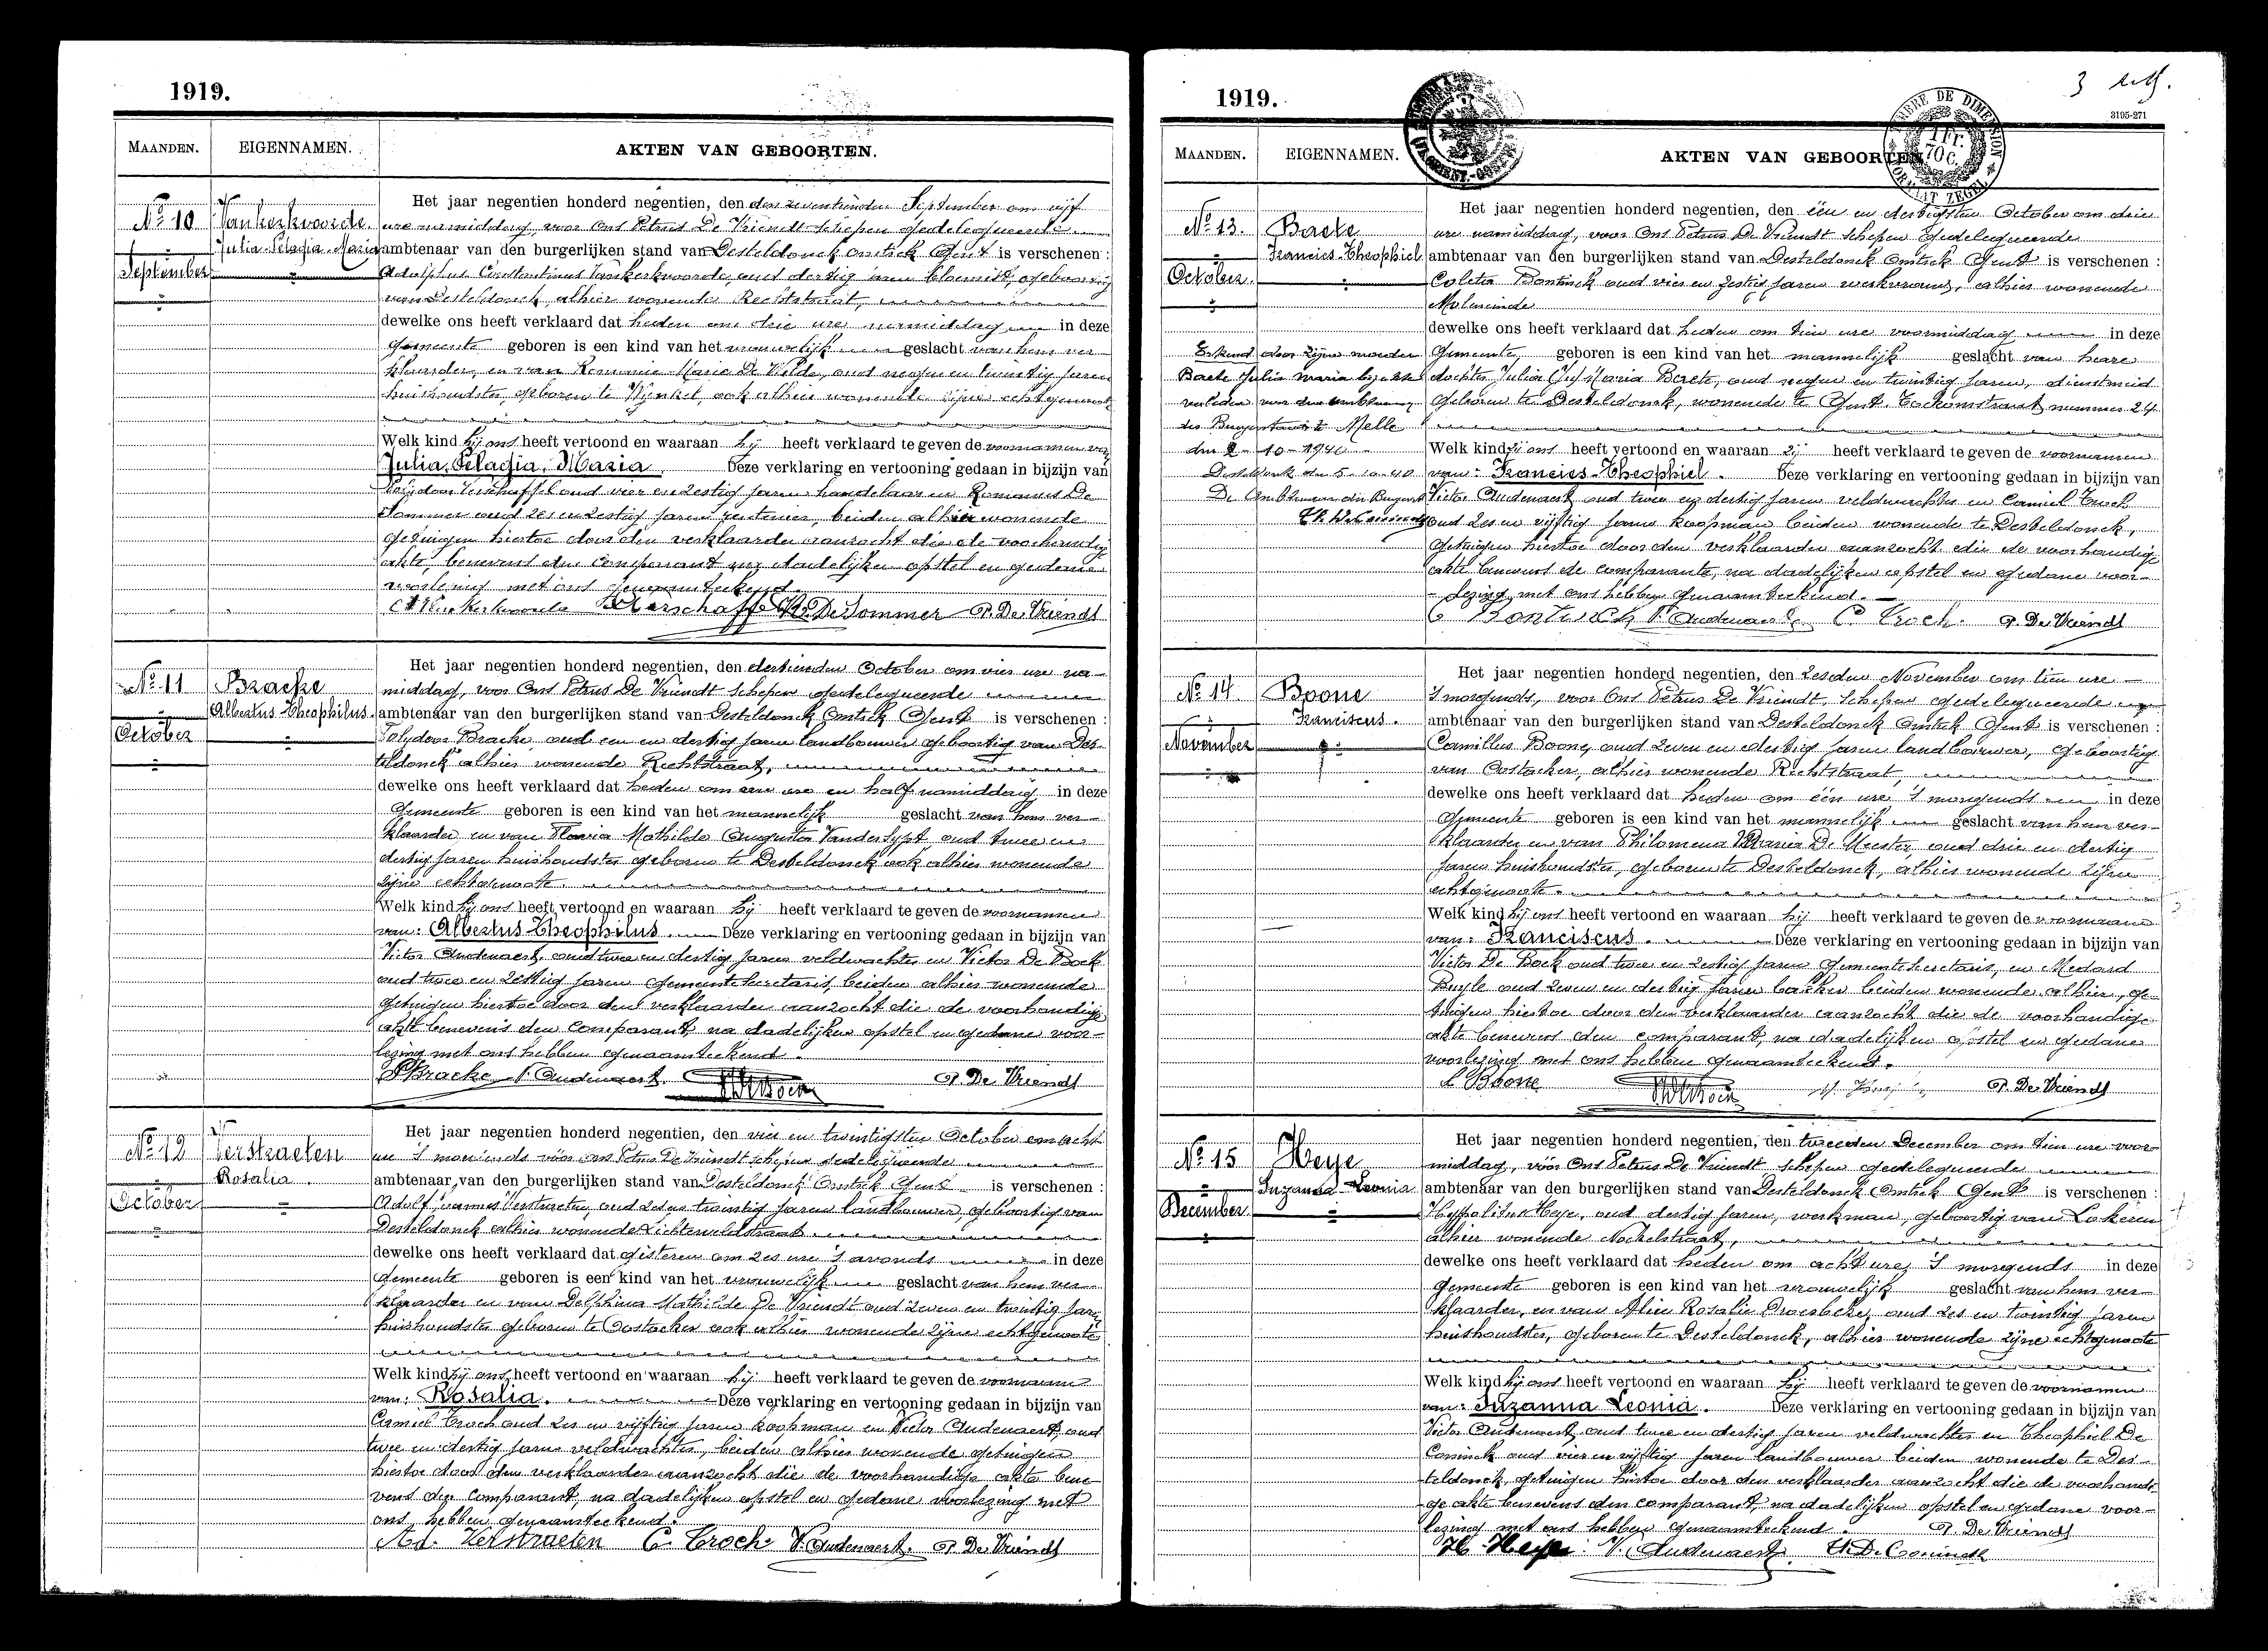 1919.
MAANDEN. EIGENNAMEN. AKTEN VAN GEBOORTEN.
No 10
September
Vankerkvoorde
Julia-Pelagia-Maria
Het jaar negentien honderd negentien, den den zeventienden September om vijf
ure namiddag, voor Ons Petrus De Vriendt schepen gedelegueerde
ambtenaar van den burgerlijken stand van Desteldonck Omtrek Gent is verschenen :
Adolphus Constantinus Vankerkvoorde, oud dertig jaren, geboortig
van Desteldonck, alhier wonende Rechtstraat,
dewelke ons heeft verklaard dat heden om drie ure namiddag in deze
Gemeente geboren is een kind van het vrouwelijk geslacht van hem ver-
klaarder, en van Romanie Marie De Wilde, oud negen en twintig jaren
huishoudster, geboren te Wynkel, ook alhier wonende zijne echtgenoote
Welk kind hij ons heeft vertoond en waaraan hij heeft verklaard te geven de voornamen van
Julia, Pelagia, Maria. Deze verklaring en vertooning gedaan in bijzijn van
Verschaffel oud vier en zestig jaren handelaar en Romanus De
Sommer oud zes en zestig jaren rentenier, beiden alhier wonende
getuigen hiertoe door den verklaarder aanzocht die de voorhandige
akte, benevens den Comparant na dadelijken opstel en gedane
voorlezing met ons genaamteekend
Verschaffel R. De Sommer P. De Vriendt
No 11
October
Bracke
Albertus-Theophilus
Het jaar negentien honderd negentien, den dertienden October om vier ure na-
middag, voor Ons Petrus De Vriendt Schepen gedelegueerde
ambtenaar van den burgerlijken stand van Desteldonck Omtrek Gent is verschenen :
Polydoor Bracke, oud een en dertig jaren landbouwer geboortig van Des-
teldonck alhier wonende Rechtstraat,
dewelke ons heeft verklaard dat heden om eene ure en half namiddag in deze
Gemeente geboren is een kind van het mannelijk geslacht van hem ver-
klaarder en van Maria Mathilde Augusta Vandersypt oud twee en
dertig jaren huishoudster geboren te Desteldonck ook alhier wonende
zijne echtgenoote
Welk kind hij ons heeft vertoond en waaraan hij heeft verklaard te geven de voornamen
van: Albertus Theophilus. Deze verklaring en vertooning gedaan in bijzijn van
Victor Audenaert, oud twee en dertig jaren veldwachter en Victor De Bock
oud twee en zestig jaren Gemeente Secretaris, beiden alhier wonende
getuigen hiertoe door den verklaarder aanzocht die de voorhandige
akte benevens den Comparant, na dadelijken opstel en gedane voor-
lezing met ons hebben genaamteekend.
P Bracke V. Audenaert P. De Vriendt
No 12
October
Verstraeten
Rosalia.
Het jaar negentien honderd negentien, den vier en twintigsten October om acht
ure 's morgends vóór ons Petrus De Vriendt schepen gedelegueerde
ambtenaar van den burgerlijken stand van Desteldonck Omtrek Gent is verschenen :
Adolf Verstraeten, oud zes en twintig jaren landbouwer, geboortig van
Desteldonck alhier wonende Lichterveldstraat
dewelke ons heeft verklaard dat gisteren om zes ure 's avonds in deze
Gemeente geboren is een kind van het vrouwelijk geslacht van hem ver-
klaarder en van Delphina Mathilde De Vriendt oud zeven en twintig jaren
huishoudster geboren te Oostacker ook alhier wonende zijne echtgenoote
Welk kind hij ons heeft vertoond en waaraan hij heeft verklaard te geven de voornaam
van: Rosalia. Deze verklaring en vertooning gedaan in bijzijn van
Camiel Troch oud zes en vijftig jaren koopman en Victor Audenaert, oud
twee en dertig jaren veldwachter, beiden alhier wonende getuigen
hiertoe door den verklaarder aanzocht die de voorhandige akte bene-
vens den Comparant, na dadelijken opstel en gedane voorlezing met
ons hebben genaamteekend.
Ad. Verstraeten C. Troch V. Audenaert. P. De Vriendt
1919.
3
3195-271
MAANDEN. EIGENNAMEN. AKTEN VAN GEBOORTEN
No 13.
October.
Baete
Francies-Theophiel
Erkend door zijne moeder
Baete Julia Maria bij akte
verleden voor den ambtenaar
des Burgerstands te Melle
den 2-10-1940
Desteldonk den 5-10-40
De Ambtenaar der Burgerst.
Het jaar negentien honderd negentien, den één en dertigsten October om drie
ure namiddag, voor Ons Petrus De Vriendt Schepen Gedelegueerde
ambtenaar van den burgerlijken stand van Desteldonck Omtrek Gent is verschenen :
Coleta Bontinck oud vier en zestig jaren werkvrouw, alhier wonende
Moleneinde
dewelke ons heeft verklaard dat heden om tien ure voormiddag in deze
Gemeente, geboren is een kind van het mannelijk geslacht van heare
dochter Julia Maria Baete, oud negen en twintig jaren, dienstmeid
geboren te Desteldonck, wonende te Gent. nummer 24
Welk kind zij ons heeft vertoond en waaraan zij heeft verklaard te geven de voornamen
van: Francies-Theophiel. Deze verklaring en vertooning gedaan in bijzijn van
Victor Audenaert oud twee en dertig jaren veldwachter en Camiel Troch
oud zes en vijftig jaren koopman beiden wonende te Desteldonck,
getuigen hiertoe door den verklaarder aanzocht die de voorhandige
akte benevens de comparante, na dadelijken opstel en gedane voor-
lezing met ons hebben genaamteekend.
C Bontinck V. Audenaert C Troch. P. De Vriendt
No 14
November
Boone
Franciscus.
Het jaar negentien honderd negentien, den zesden November om tien ure
's morgends, voor Ons Petrus De Vriendt, Schepen gedelegueerde
ambtenaar van den burgerlijken stand van Desteldonck Omtrek Gent is verschenen :
Camillus Boone, oud zeven en dertig jaren landbouwer, geboortig
van Oostacker, alhier wonende Rechtstraat,
dewelke ons heeft verklaard dat heden om één ure 's morgends in deze
Gemeente geboren is een kind van het mannelijk geslacht van hem ver-
klaarder en van Philomena Maria De Meester, oud drie en dertig
jaren huishoudster, geboren te Desteldonck, alhier wonende zijne
echtgenoote.
Welk kind hij ons heeft vertoond en waaraan hij heeft verklaard te geven de voornaam
van: Franciscus. Deze verklaring en vertooning gedaan in bijzijn van
Victor De Bock oud twee en zestig jaren Gemeente Secretaris, en Medard
Buyle oud zeven en dertig jaren bakker beiden wonende alhier, ge-
tuigen hiertoe door den verklaarder aanzocht die de voorhandige
akte benevens den comparant, na dadelijken opstel en gedane
voorlezing met ons hebben genaamteekend.
Boone P. De Vriendt
No 15
December
Heye
Suzanna-Leonia
Het jaar negentien honderd negentien, den tweeden December om tien ure voor-
middag, vóór Ons Petrus De Vriendt Schepen gedelegueerde
ambtenaar van den burgerlijken stand van Desteldonck Omtrek Gent is verschenen :
Hyppolitus Heye, oud dertig jaren, werkman, geboortig van Lokeren
alhier wonende
dewelke ons heeft verklaard dat heden om acht ure 's morgends in deze
Gemeente geboren is een kind van het vrouwelijk geslacht van hem ver-
klaarder, en van Rosalie Droesbeke, oud zes en twintig jaren
huishoudster, geboren te Desteldonck, alhier wonende zijne echtgenoote
Welk kind hij ons heeft vertoond en waaraan hij heeft verklaard te geven de voornamen
van: Suzanna Leonia. Deze verklaring en vertooning gedaan in bijzijn van
Victor Audenaert, oud twee en dertig jaren veldwachter en Theophiel De
Coninck oud vier en vijftig jaren landbouwer beiden wonende te Des-
teldonck, getuigen hiertoe door den verklaarder aanzocht die de voorhandi-
ge akte benevens den comparant, na dadelijken opstel en gedane voor-
lezing met ons hebben genaamteekend. P. De Vriendt
H. Heye V. Audenaert Th De Coninck